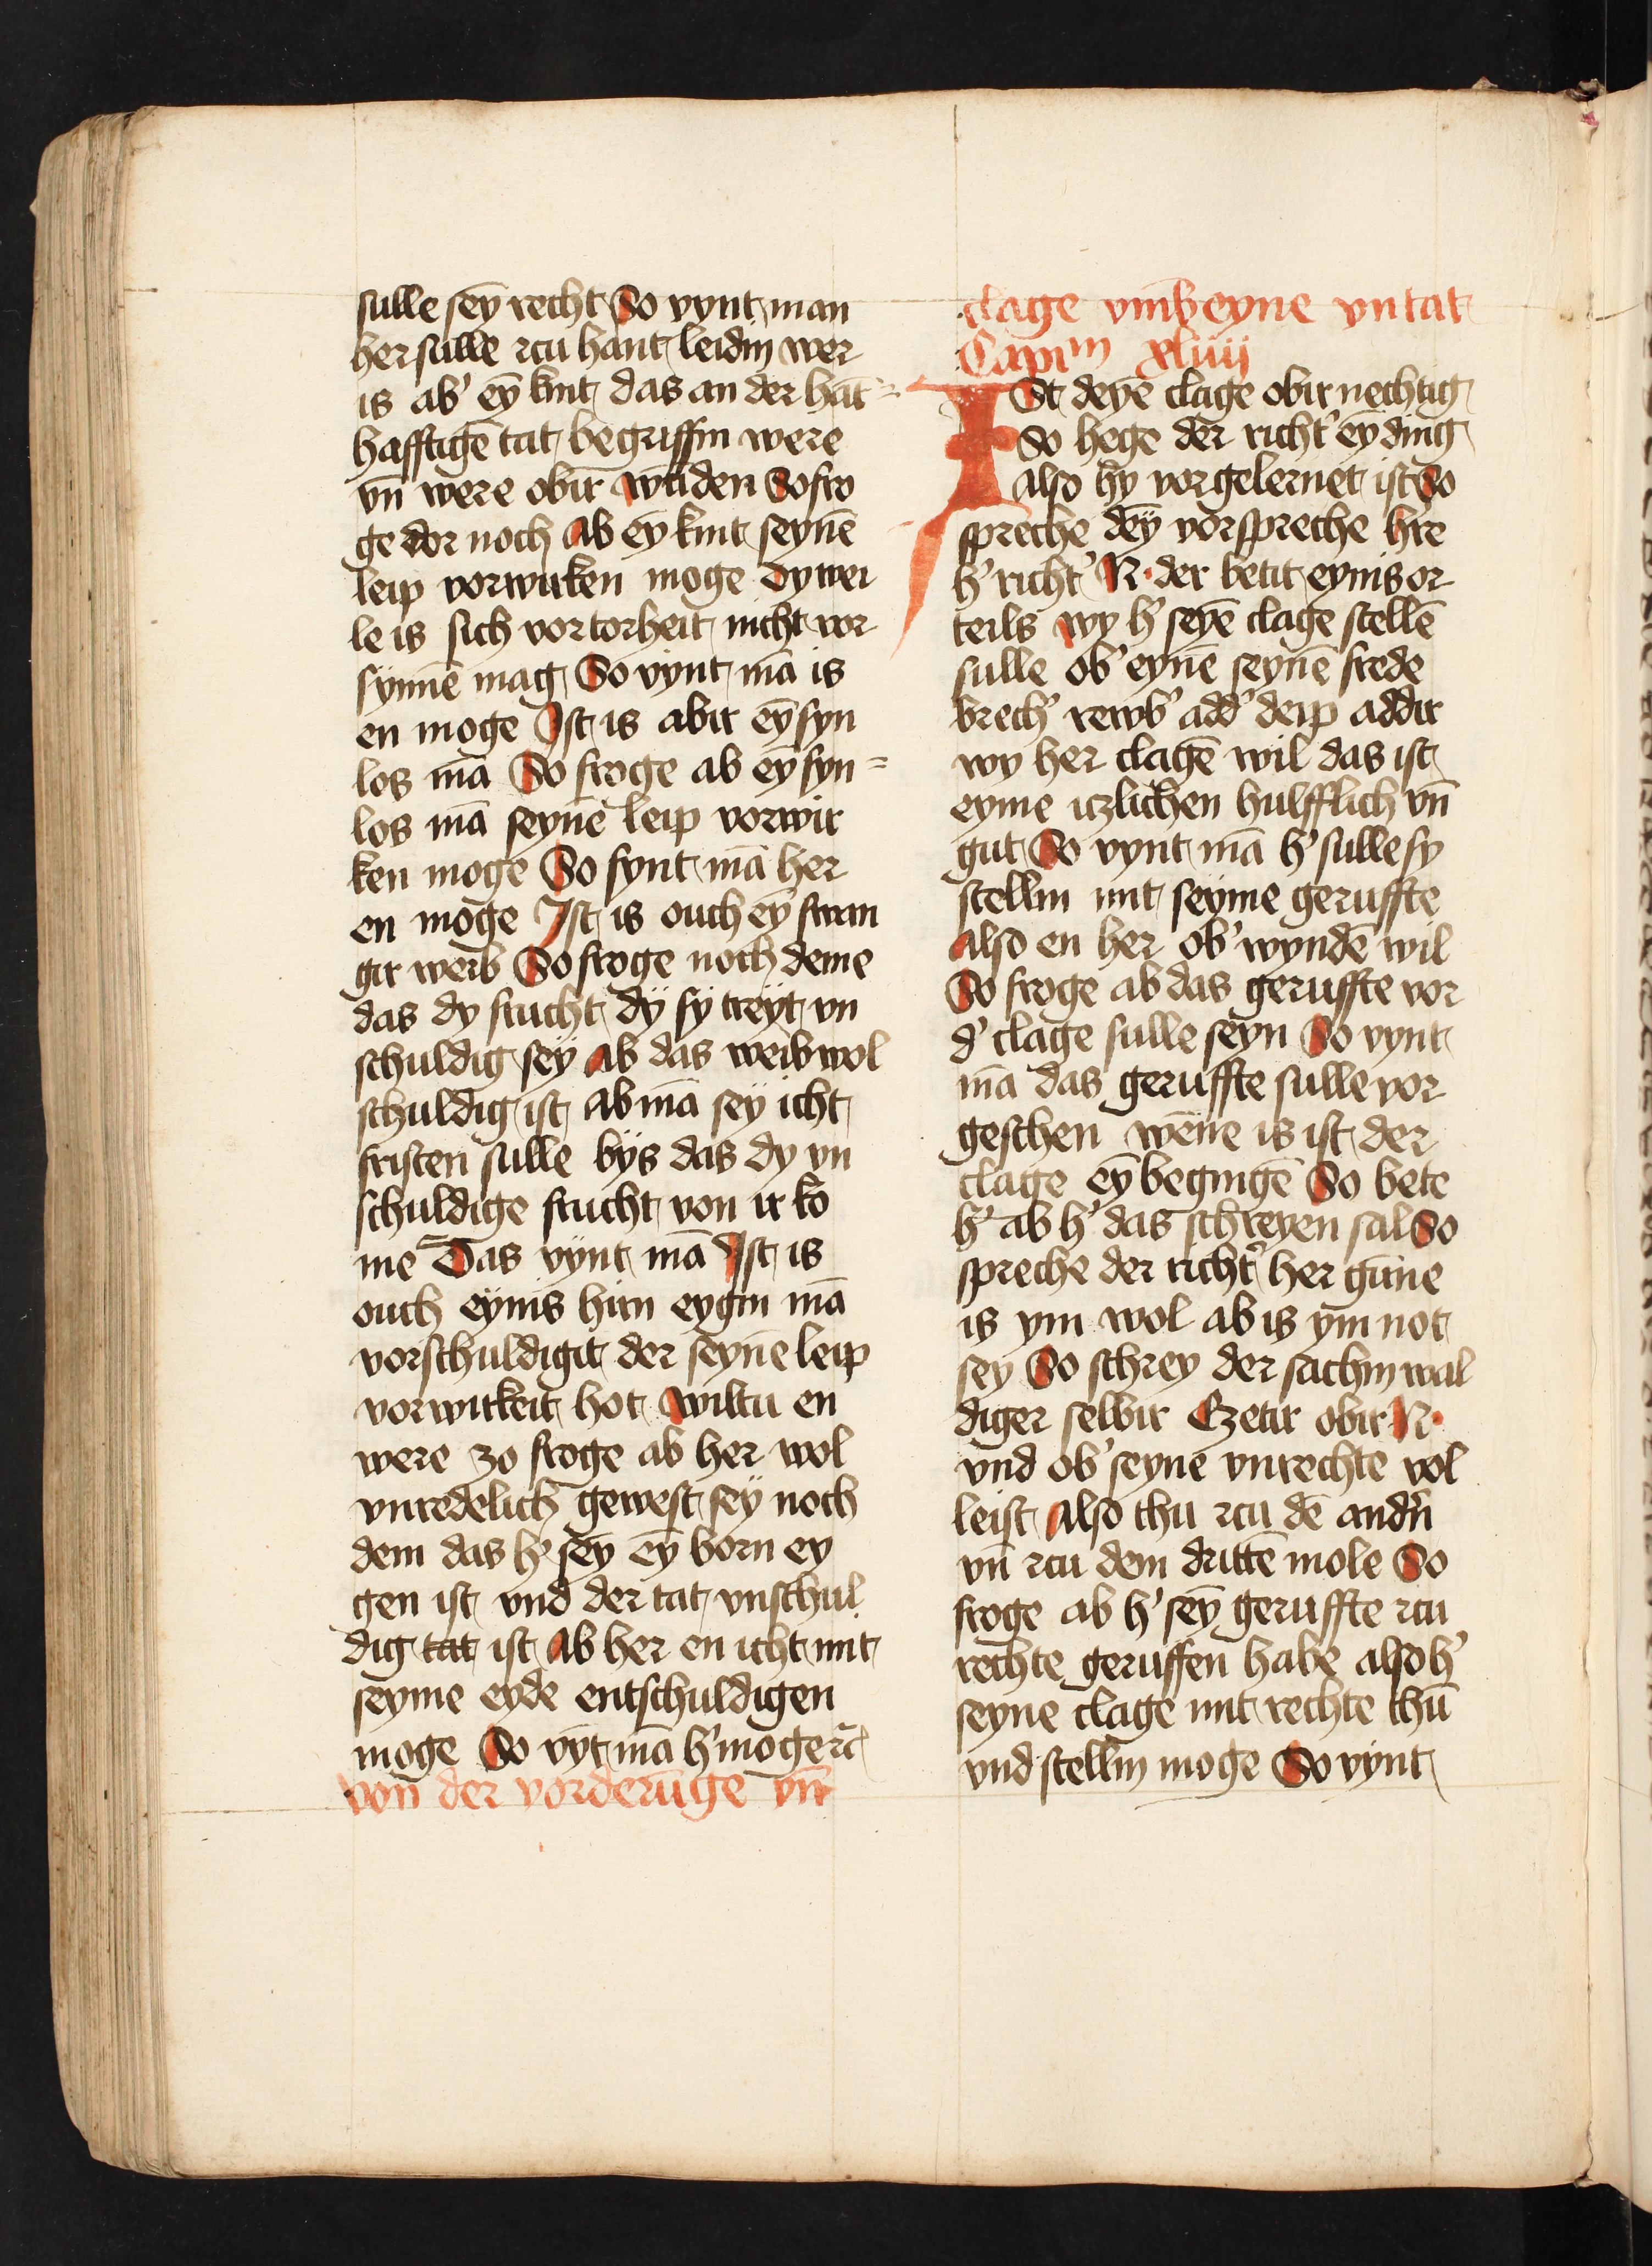 sulle sey̅ recht So vynt man
her sulle rcu hant leidin wer
is ab' ey̅ kint das an der hāt=
hafftigē tat begriffin were
vn̄ were obir wūden So fro
ge dor noch Ab ey̅ kint seynē
leip vorwirken moge Dy wei
le is sich vor torheit nicht vor
synnē mag So vynt mā is
en moge Ist is abir ey̅ syn
los mā So froge ab ey̅ syn=
los mā seynē leip vorwir
ken moge So fynt mā her
en moge Ist is ouch ey̅ swan
gir weib So froge noch deme
das dy frucht dy sy treyt vn
schuldig sey Ab das weib wol
schuldig ist ab mā sey icht
fristen sulle bys das dy vn
schuldige frucht von ir ko
me Das vynt mā Ist is
ouch eynis hirn eygin mā
vorschuldigit der seynē leip
vorwirkeit hot wiltu en
were zo froge ab her wol
vnredelich gewest sey noch
dem das h' sey̅ ey̅ born ey
gen ist vnd der tat vnschul
dig tat ist Ab her en icht mit
seyme eyde entschuldigen
moge So vy̅t mā h' moge rc̄
von der vorderūge vn̄
clage vmb eyne vntat
Capim̄ xliiij
ISt deyē clage obir nechtig
So hege der richt' ey̅ ding
also hy vor gelernet ist So
spreche dey̅ vorspreche h're
h' richt' N· der betit eynis or
teils wy h' seyē clage stellē
sulle ob' eynē seynē frede
brech' rewb' add' deip addir
wy her clagē wil das ist
eyme iczlichen hulfflich vn̄
gut So vynt mā h' sulle sy
stellin mit seyme geruffte
Also en her ob' wyndē wil
So froge ab das geruffte vor
d' clage sulle seyn So vynt
mā das geruffte sulle vor
geschen wēne is ist der
clage ey̅ begingē So bete
h' ab h' das schreyen sal So
spreche der richt' her gūne
is ym wol ab is ym not
sey So schrey der sachin wal
diger selbir Czetir obir N·
vnd ob' seyne vnrechte vol
leist Also thu rcu dē and'n
vn̄ rcu dem drittē mole So
froge ab h' sey̅ geruffte rcu
rechte geruffen habe also h'
seyne clage mit rechte thū
vnd stellin moge So vynt